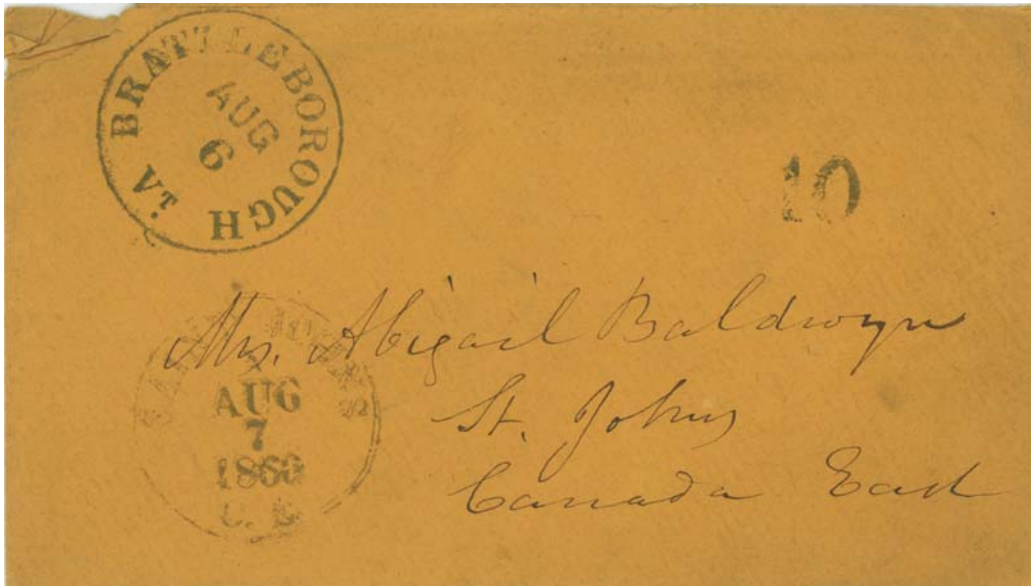 BRATTLEBOROUGH Vt.
AUG
6
10
Mrs. Abigail Baldwyn
St. Johns
Canada East
AUG
7
1860
C. E